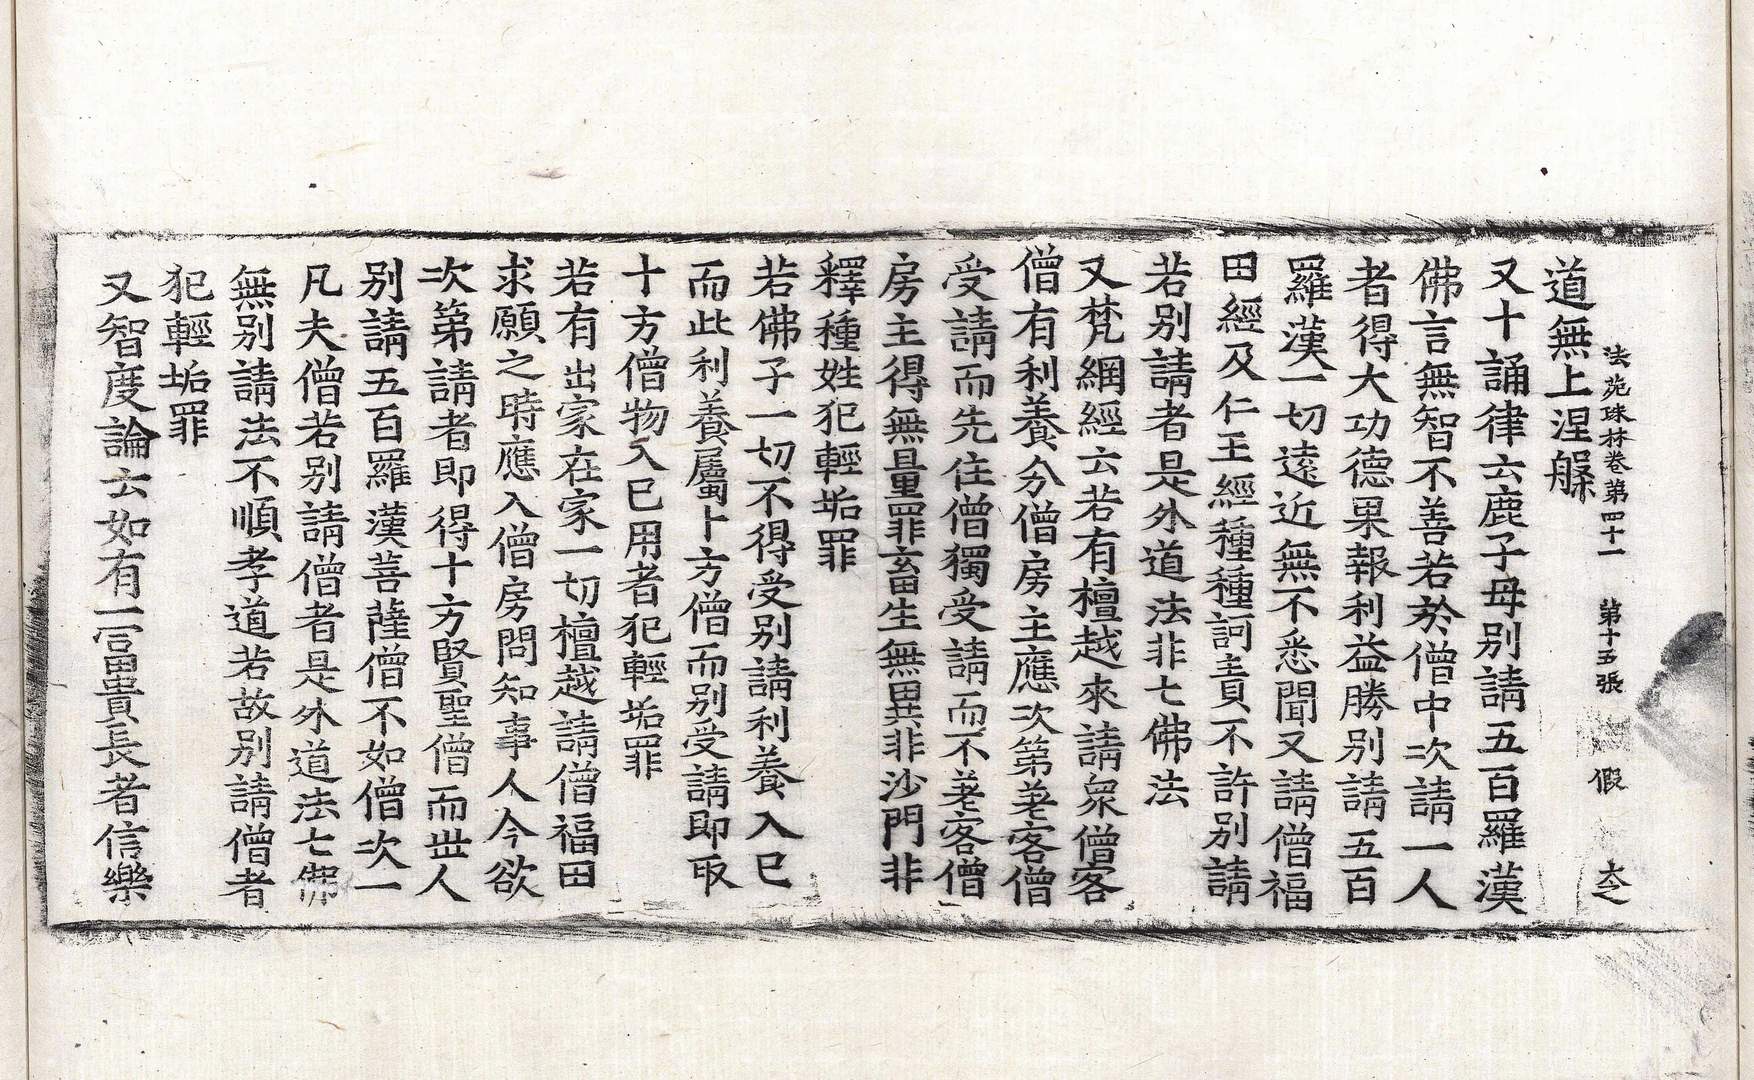 法苑珠林卷第四十一 第十五張 假
道無上涅槃
又十誦律云鹿子母别請五百羅漢
佛言無智不善若於僧中次請一人
者得大功德果報利益勝别請五百
羅漢一切遠近無不悉聞又請僧福
田經及仁王經種種訶責不許别請
若别請者是外道法非七佛法
又梵網經云若有檀越來請衆僧客
僧有利養分僧房主應次第差客僧
受請而先住僧獨受請而不差客僧
房主得無量罪畜生無異非沙門非
釋種姓犯輕垢罪
若佛子一切不得受别請利養入已
而此利養屬十方僧而别受請即取
十方僧物入已用者犯輕垢罪
若有出家在家一切檀越請僧福田
求願之時應入僧房問知事人今欲
次第請者即得十方賢聖僧而世人
别請五百羅漢菩薩僧不如僧次一
凡夫僧若别請僧者是外道法七佛
無别請法不順孝道若故别請僧者
犯輕垢罪
又智度論云如有一富貴長者信樂